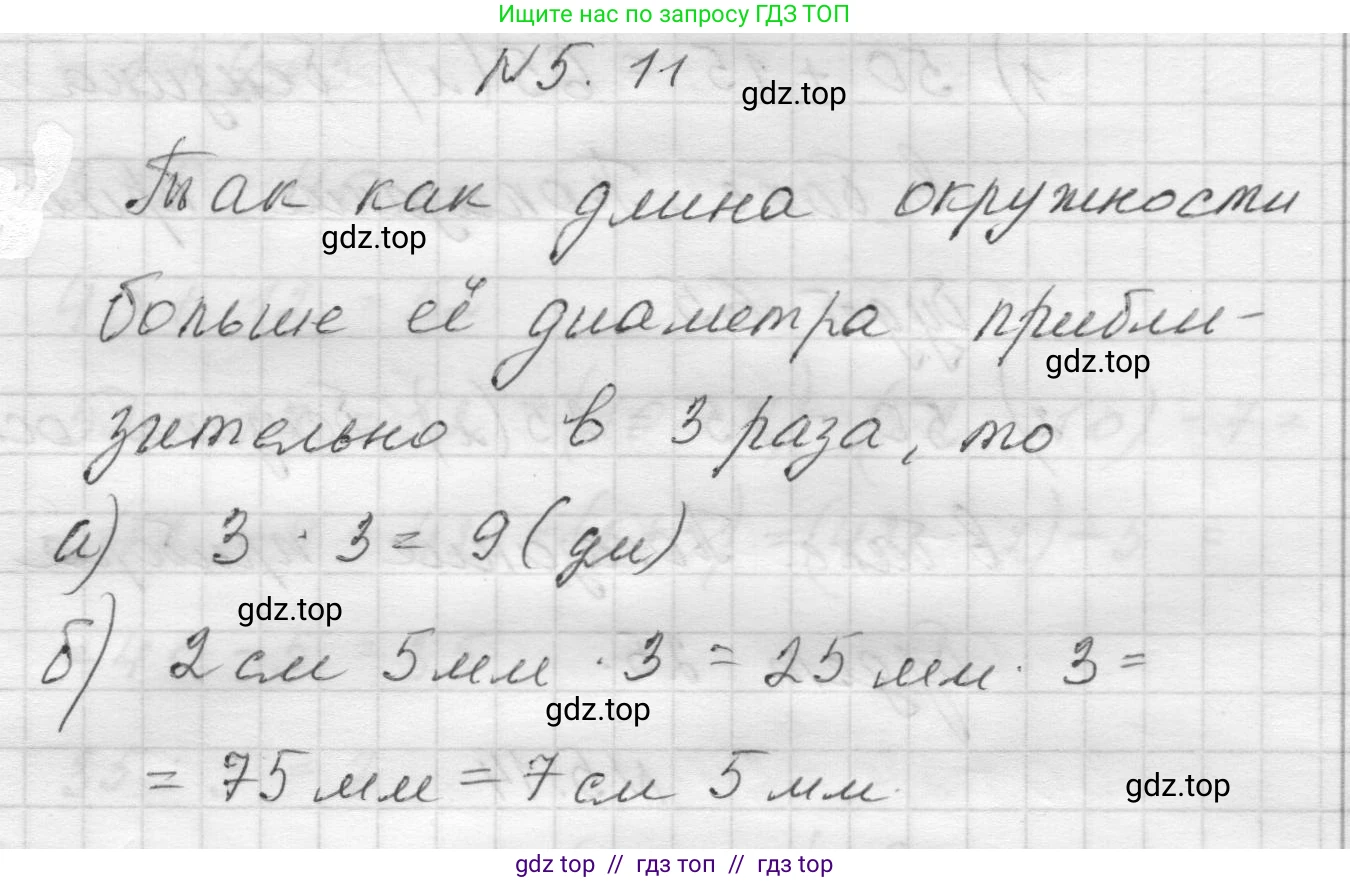 Ищите нас по запросу ГДЗ ТОП
N 5. 11
gdz.top
Так как длина окружности
gdz.top
больше её диаметра прибли-
gdz.top
зительно в 3 раза, то
а) 3 · 3 = 9 (дм)
gdz.top
б) 2 см 5 мм · 3 = 25 мм · 3 =
gdz.top
= 75 мм = 7 см 5 мм.
gdz.top
gdz.top // гдз топ // гдз top